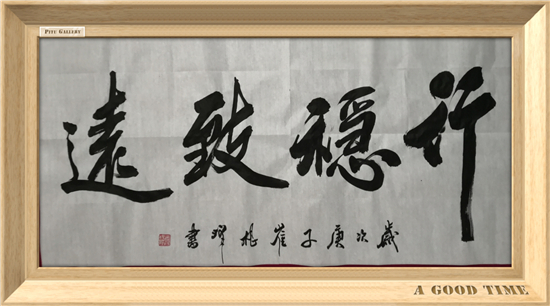 PITU GALLERY
行穩致遠
歲次庚子崔 書
A GOOD TIME